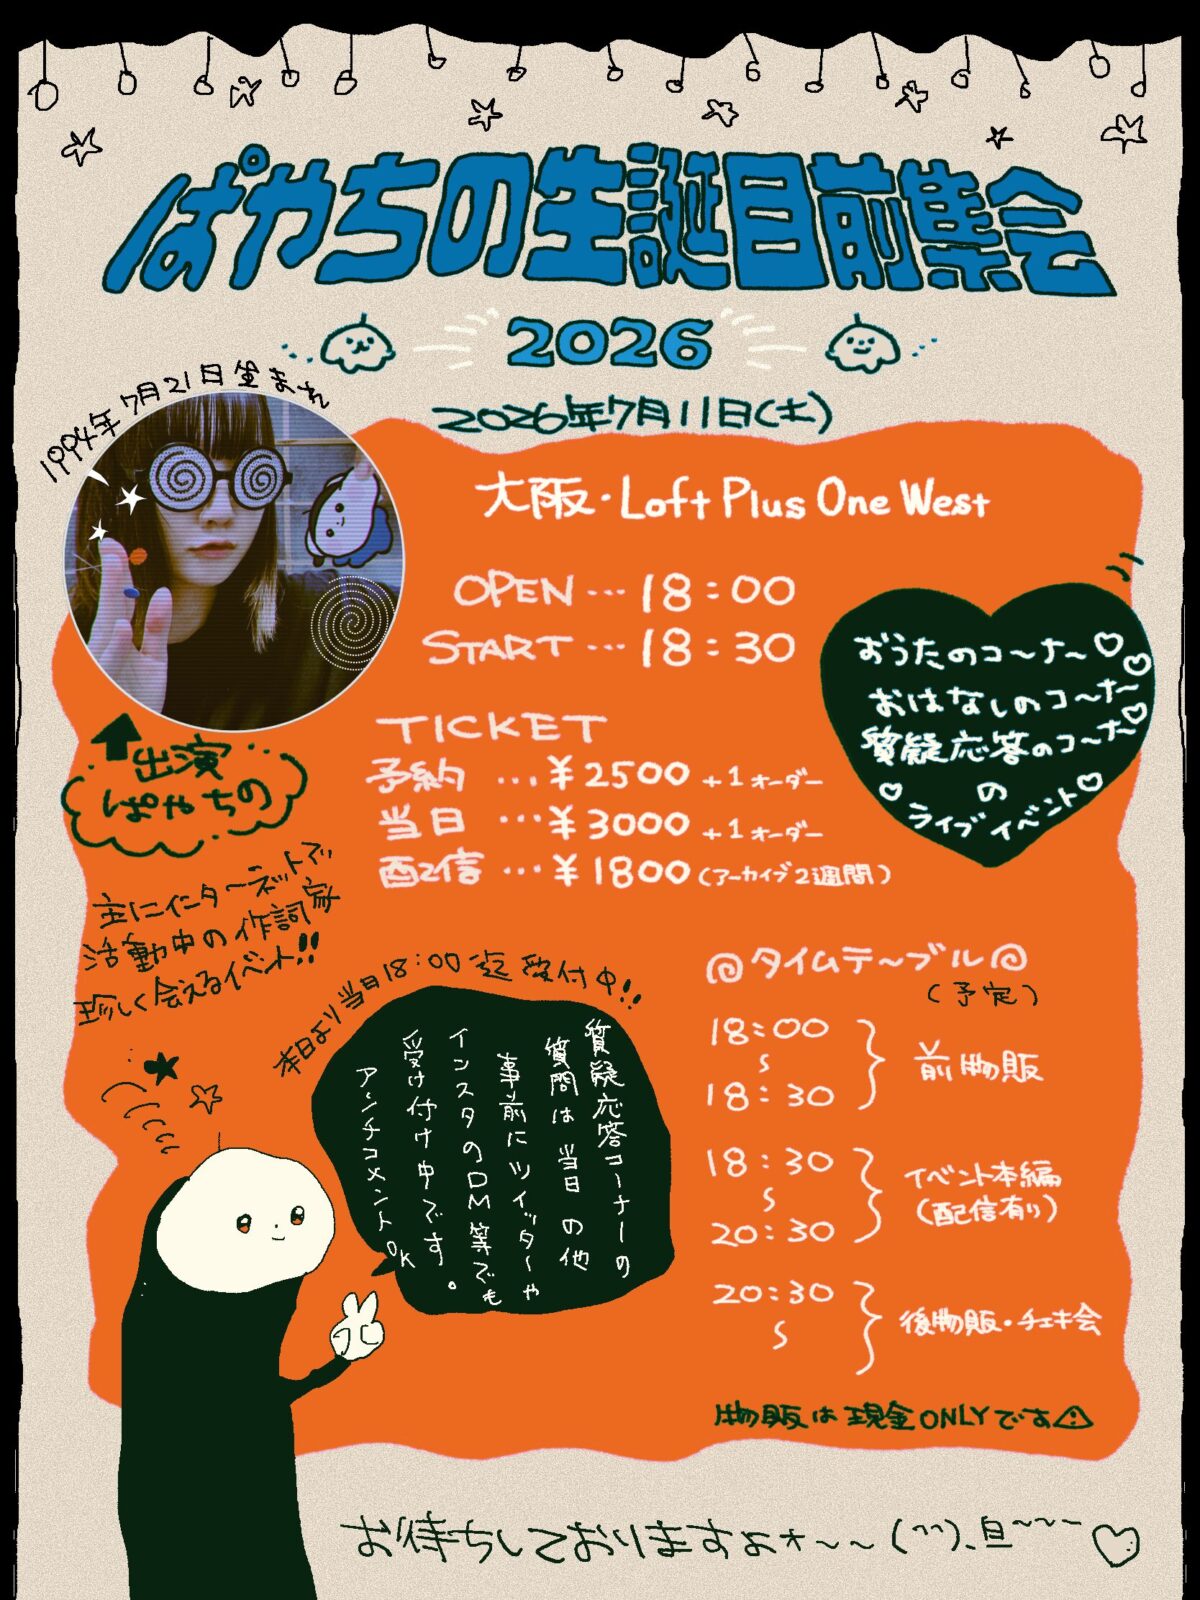 ぱやちの生誕目前集会
2026
2026年7月11日(土)
1994年7月21日生まれ
大阪・Loft Plus One West
OPEN…18:00
START…18:30
おうたのコ〜ナ〜♡
おはなしのコ〜ナ〜♡
質疑応答のコ〜ナ〜♡
の
♡ライブイベント♡
TICKET
予約…¥2500+1オーダー
当日…¥3000+1オーダー
配信…¥1800(アーカイブ2週間)
出演
ぱやちの
主にインターネットで
活動中の作詞家
珍しく会えるイベント!!
本日より当日18:00迄受付中!!
質疑応答コーナーの
質問は当日の他
事前にツイッターや
インスタのDM等でも
受け付け中です。
アンチコメントOK
タイムテ〜ブル
(予定)
18:00
〜
18:30
前物販
18:30
〜
20:30
イベント本編
(配信有り)
20:30
〜
後物販・チェキ会
物販は現金ONLYです⚠
お待ちしておりますよォ〜〜(^^)、旦~~~♡